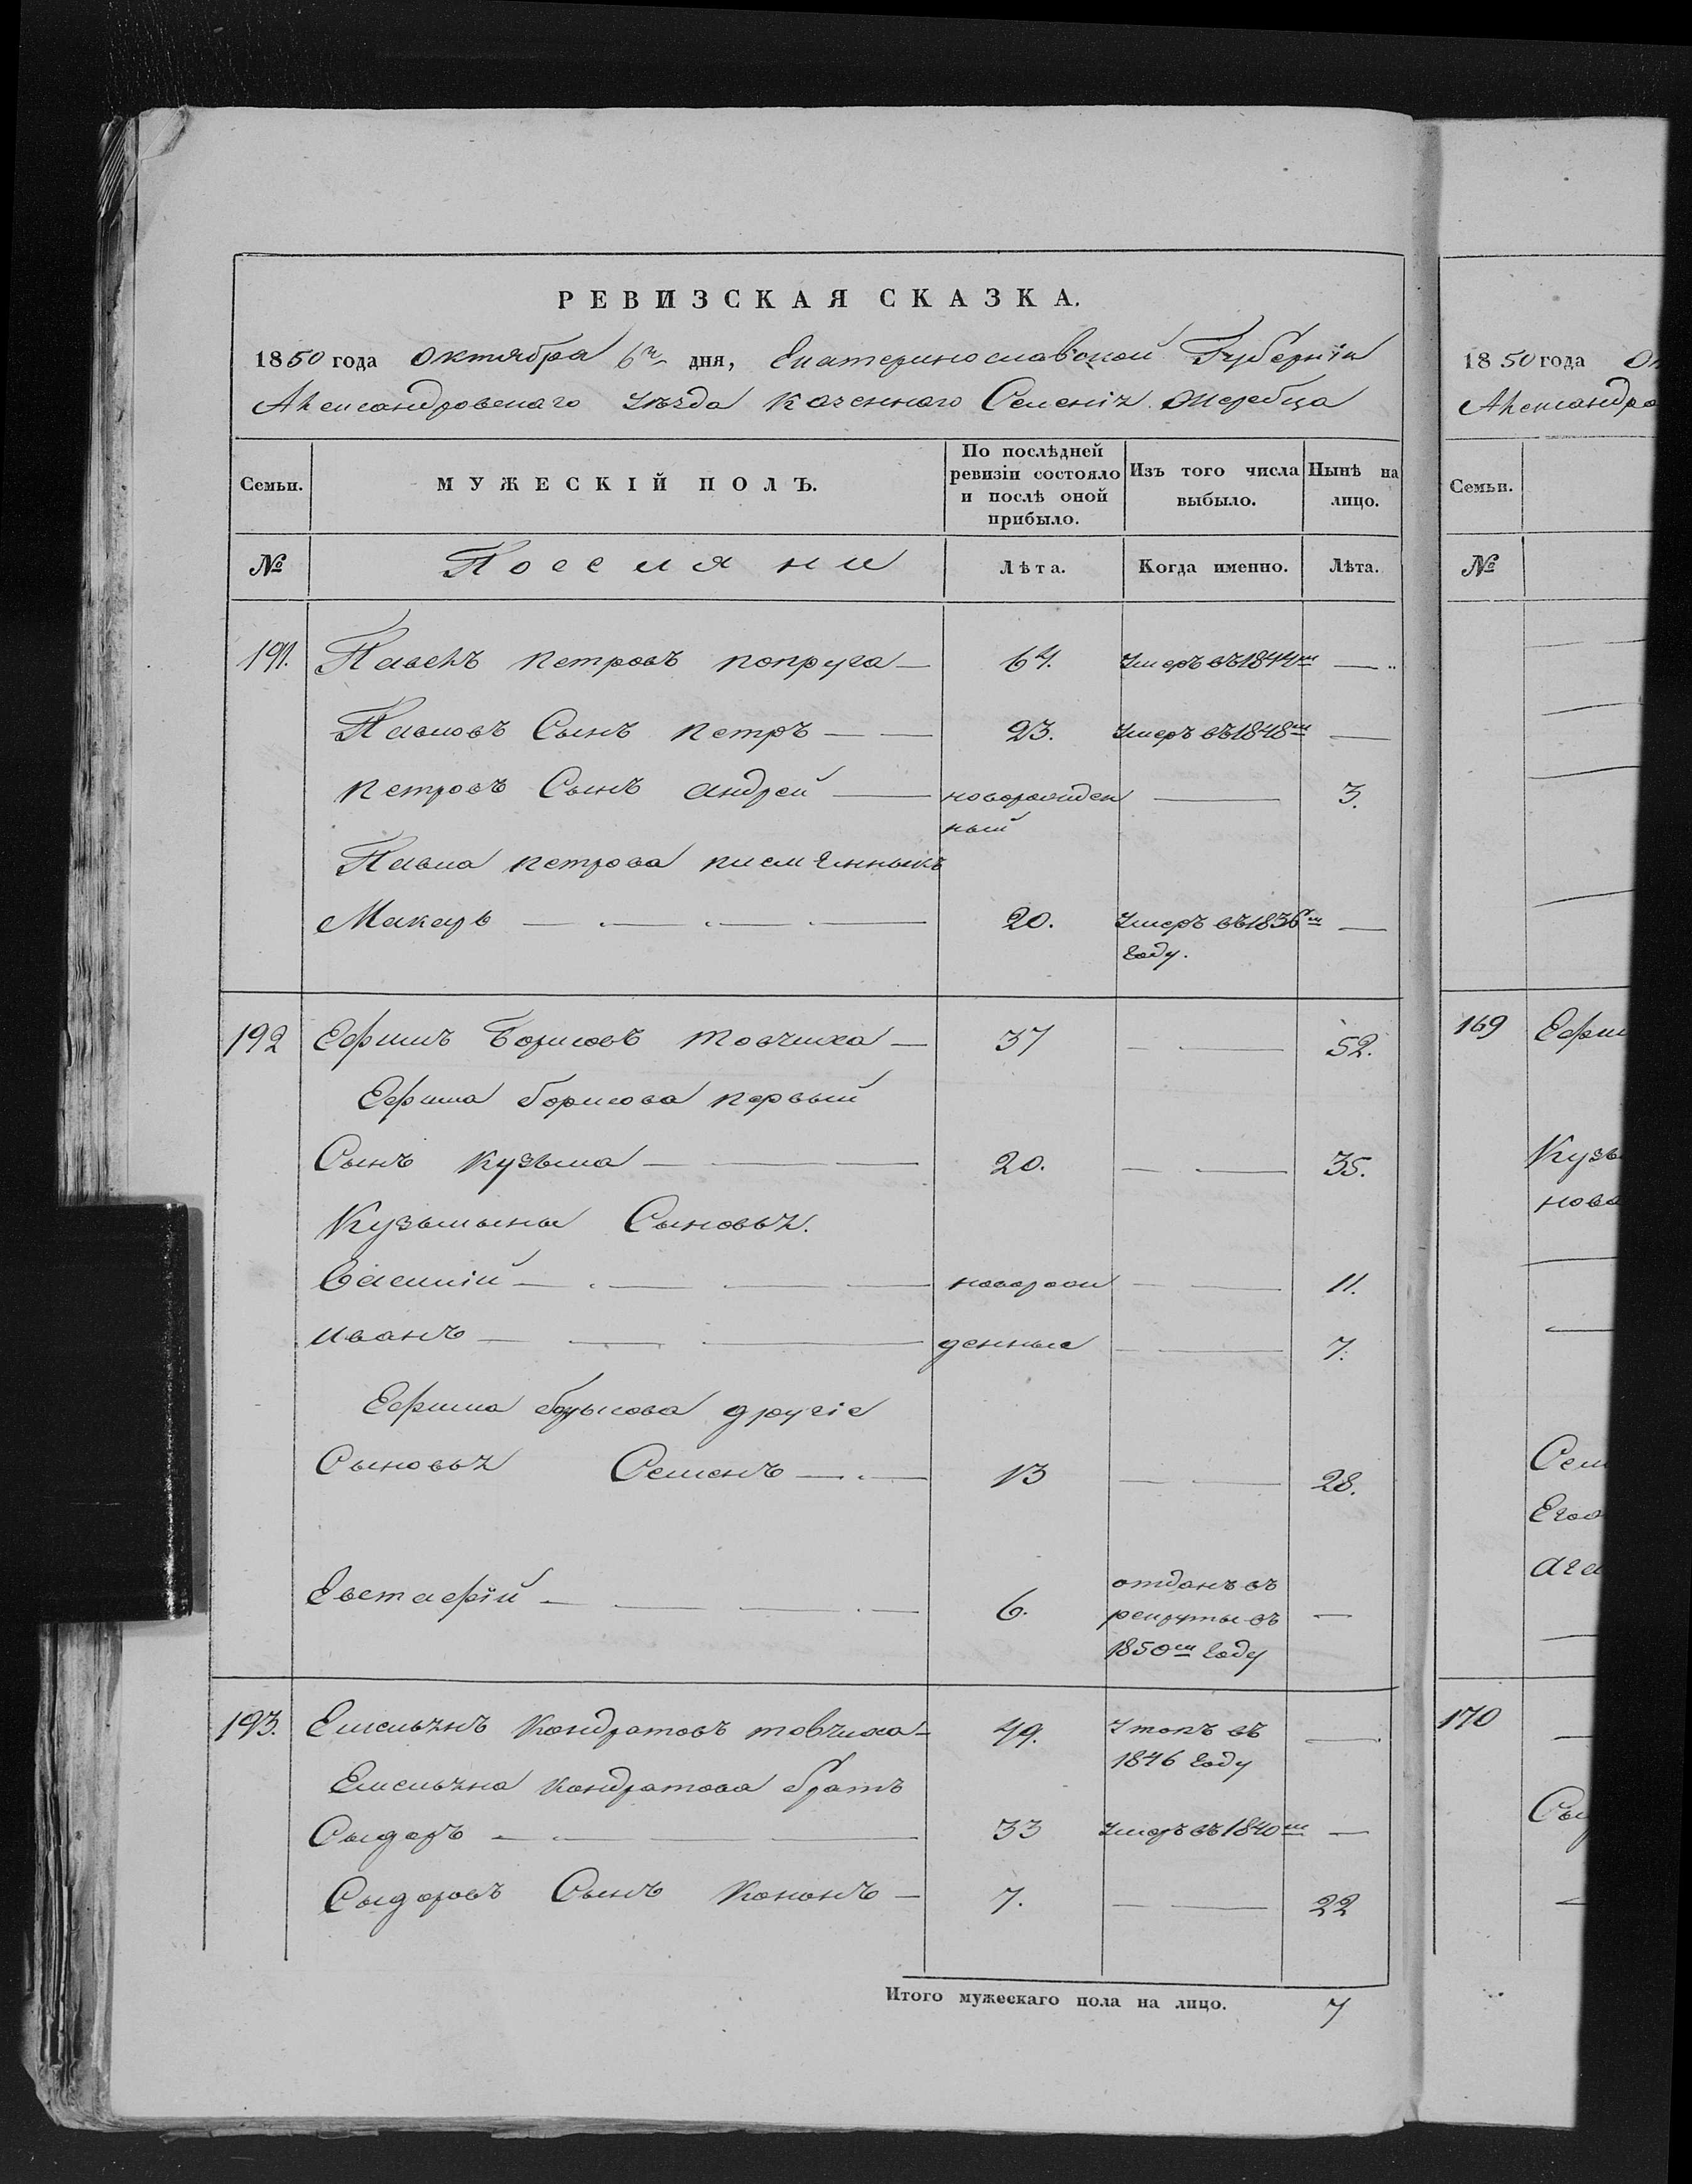 РЕВИЗСКАЯ СКАЗКА.
1850 года Октября 6го дня, Екатеринославской Губерніи
Александровскаго Уѣзда Казеннаго Селенія Жеребца
Семьи.
МУЖЕСКІЙ ПОЛЪ.
По послѣдней ревизіи состояло и послѣ оной прибыло.
Изъ того числа выбыло.
Нынѣ на лицо.
№ Поселяни Лѣта. Когда именно. Лѣта.
191. Павелъ Петровъ Попруга — 64. Умеръ въ 1844м —
Павловъ Сынъ Петръ — — 23. Умеръ въ 1848м —
Петровъ Сынъ Андрей — новорожден — 3.
ный
Павла Петрова племянникъ
Макаръ — — — — 20. Умеръ въ 1836м —
Году.
192 Ефимъ Борисовъ Товчиха — 37 — — 52.
Ефима Борисова первый
Сынъ Кузьма — — — 20. — — 35.
Кузьмины Сыновья.
Василій — — — — новорож — — 11.
Иванъ — — — денные — — 7.
Ефима Борисова другіе
Сыновья Семенъ — — 13 — — 28.
Евстафій — — — — 6. отданъ въ
рекруты въ —
1850м Году
193. Емельянъ Кондратовъ товчиха — 49. Утопъ въ —
1846 Году
Емельяна Кондратова братъ
Сыдоръ — — — — 33 Умеръ въ 1840м —
Сыдоровъ Сынъ Кононъ — 7. — — 22
Итого мужескаго пола на лицо. 7
1850 года
Александро
Семьи.
№
169 Ефи
Кузь
ново
Сем
Его
ага
170
Сы